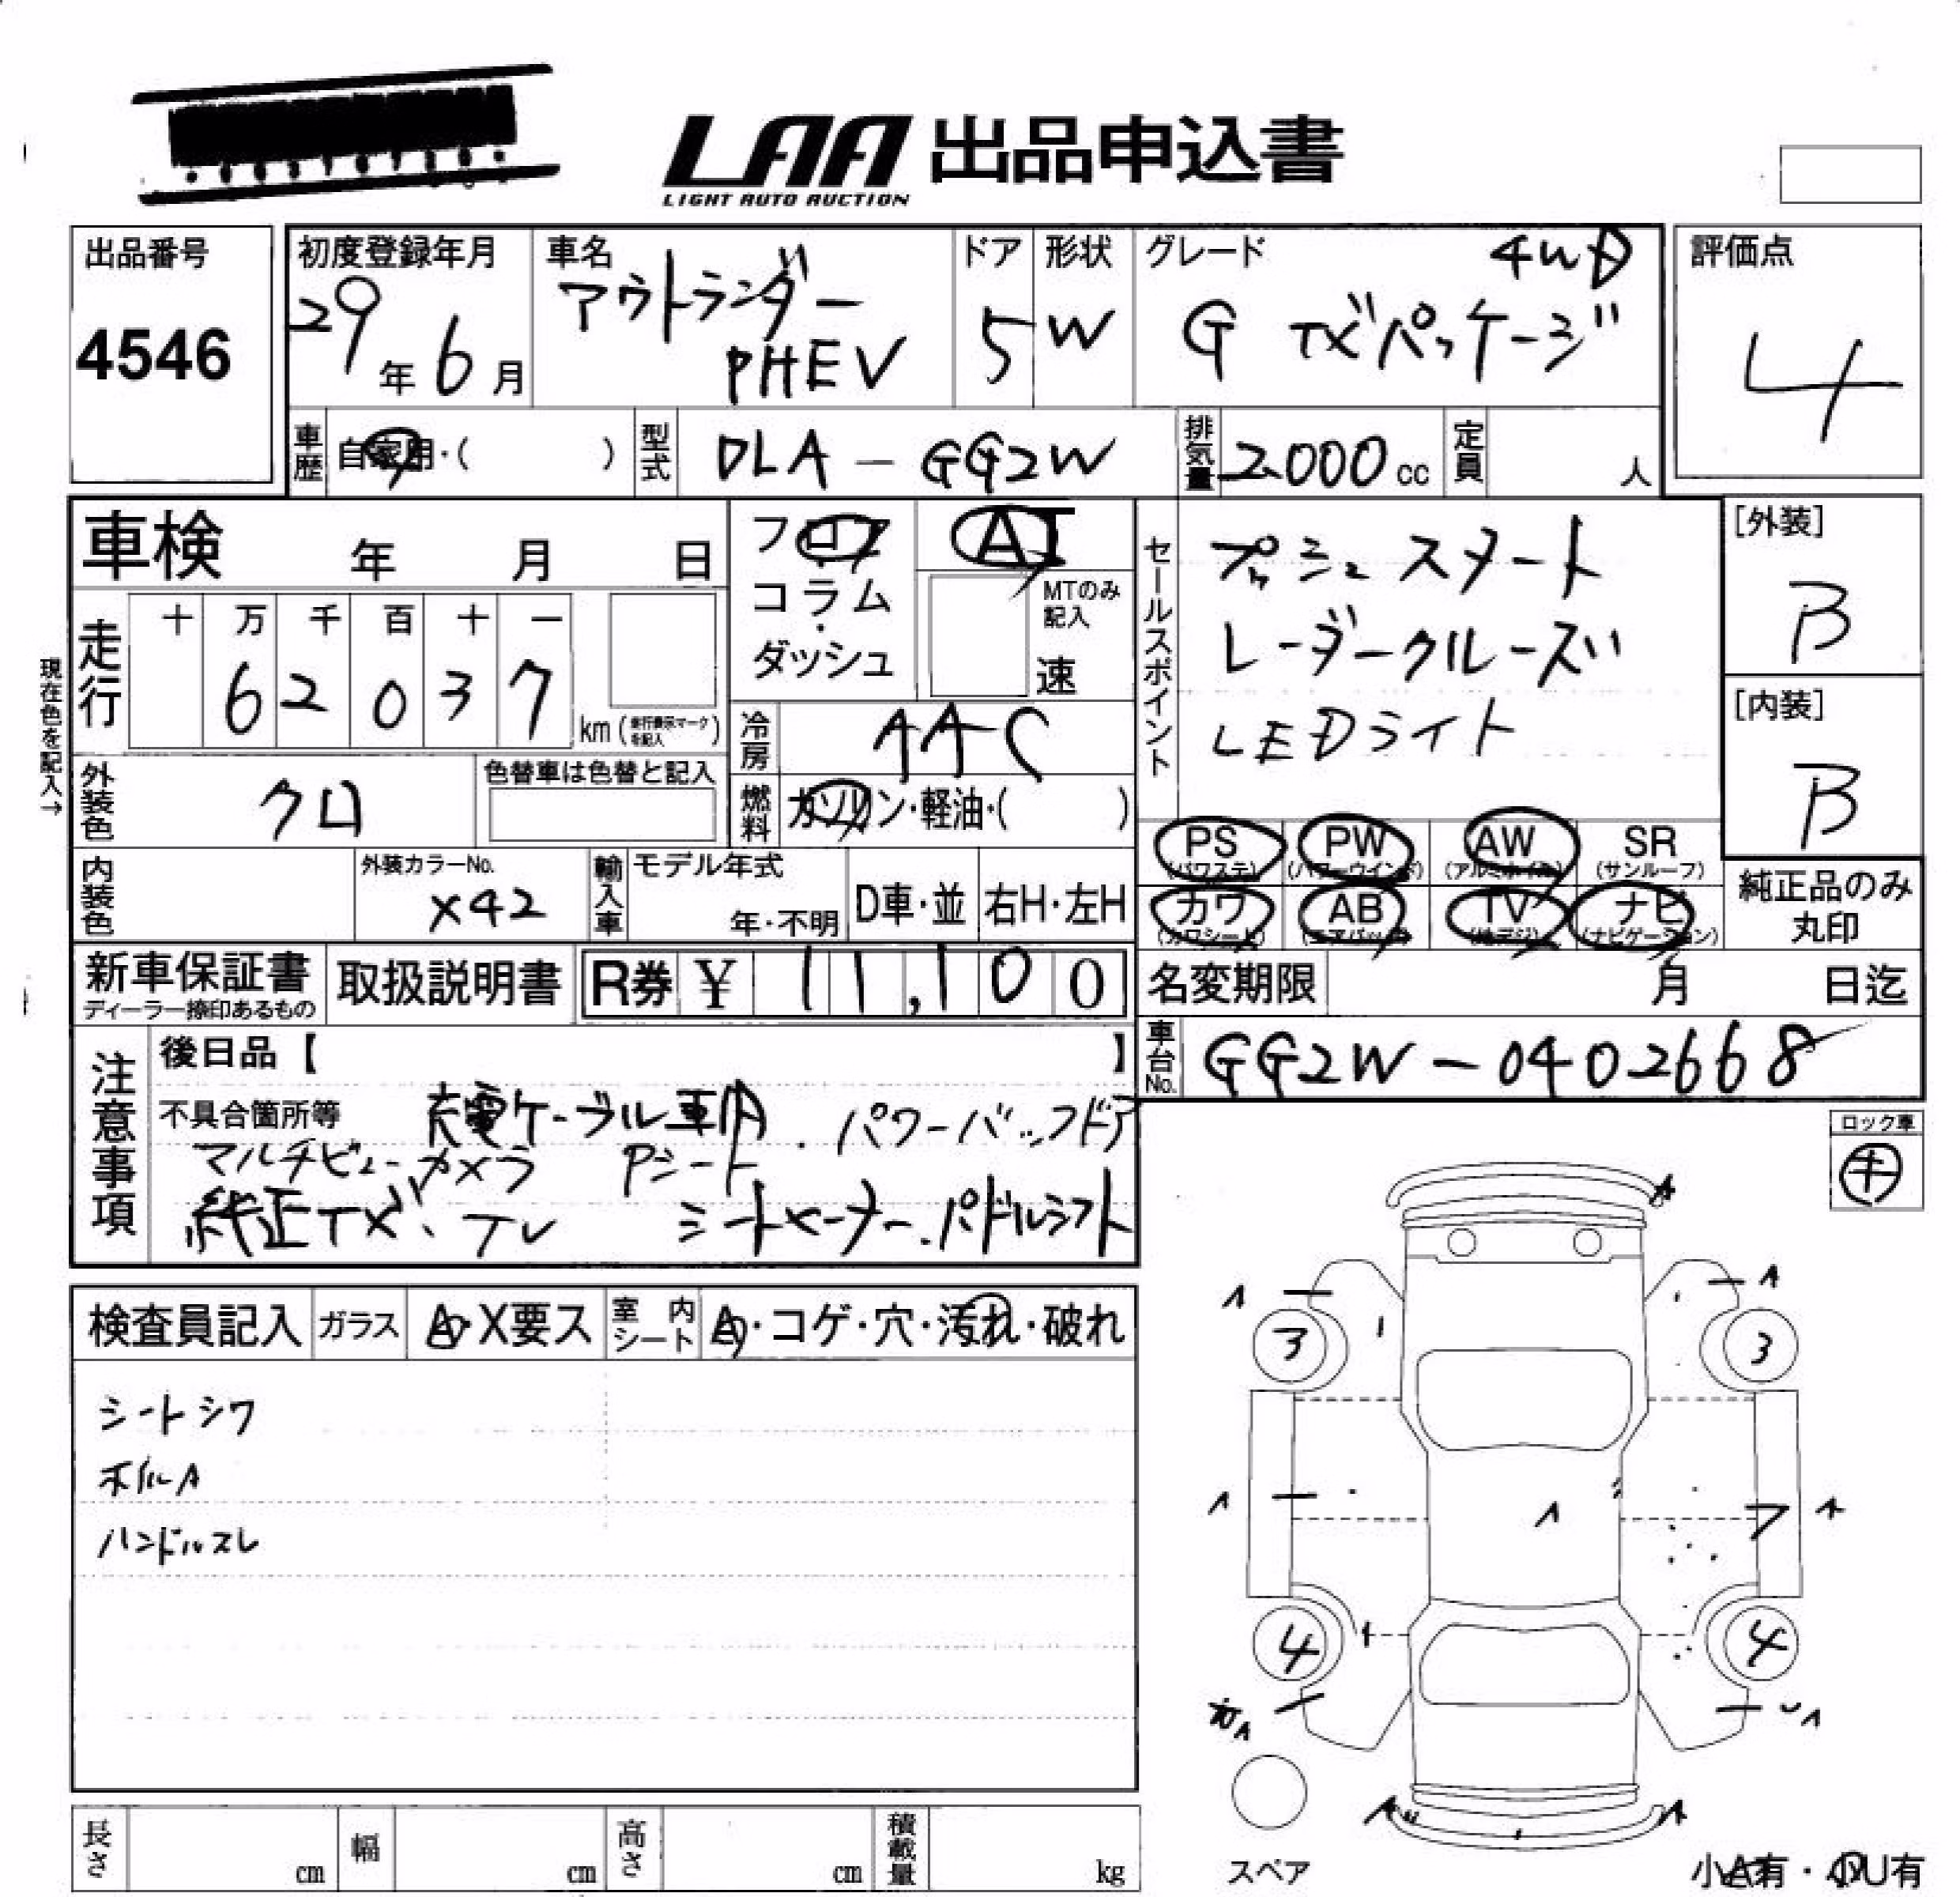 LAA 出品申込書
LIGHT AUTO AUCTION
出品番号
4546
初度登録年月
29年6月
車名
アウトランダー
PHEV
ドア
5
形状
W
グレード 4WD
G ナビパッケージ
評価点
4
車歴 自家用・( )
型式 DLA-GG2W
排気量 2000cc
定員 人
車検 年 月 日
フロア
コラム
・
ダッシュ
AT
MTのみ
記入
速
セールスポイント
プッシュスタート
レーダークルーズ
LEDライト
[外装]
B
[内装]
B
現在色を記入→
走行
十 万 千 百 十 一
6 2 0 3 7
km(走行表示マークを記入)
冷房 AAC
燃料 ガソリン・軽油・( )
外装色 クロ
色替車は色替と記入
PS (パワステ)
PW (パワーウインド)
AW (アルミホイル)
SR (サンルーフ)
カワ (カワシート)
AB (エアバッグ)
TV (地デジ)
ナビ (ナビゲーション)
純正品のみ
丸印
内装色
外装カラーNo.
X42
輸入車
モデル年式
年・不明
D車・並
右H・左H
新車保証書
ディーラー捺印あるもの
取扱説明書
R券 ¥ 11,100
名変期限 月 日迄
車台No. GG2W-0402668
注意事項
後日品【 】
不具合箇所等 充電ケーブル車用・パワーバックドア
マルチビューカメラ Pシート
純正ナビ・TV シートヒーター・パドルシフト
ロック車
キ
検査員記入
ガラス A・X要ス
室内シート A・コゲ・穴・汚れ・破れ
シートシワ
ホイルA
ハンドルスレ
A
A
A
3
3
A
A
A
4
4
A
A
A
A
スペア
小A有・小U有
長さ cm
幅 cm
高さ cm
積載量 kg